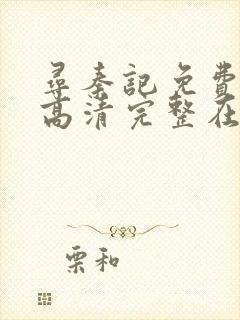 尋秦記免費
高清完整在
栗和